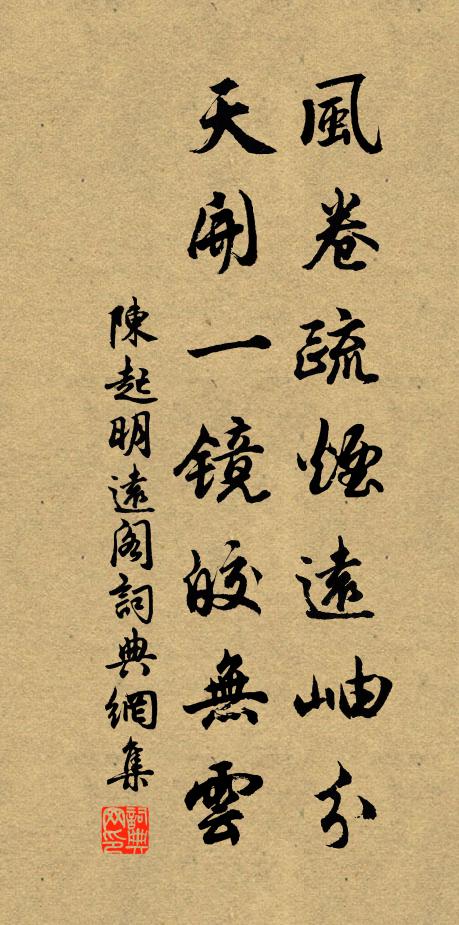 風卷疏煙遠岫分
天開一鏡皎無雲
陳起明遠閣詞典網集
詞典網印